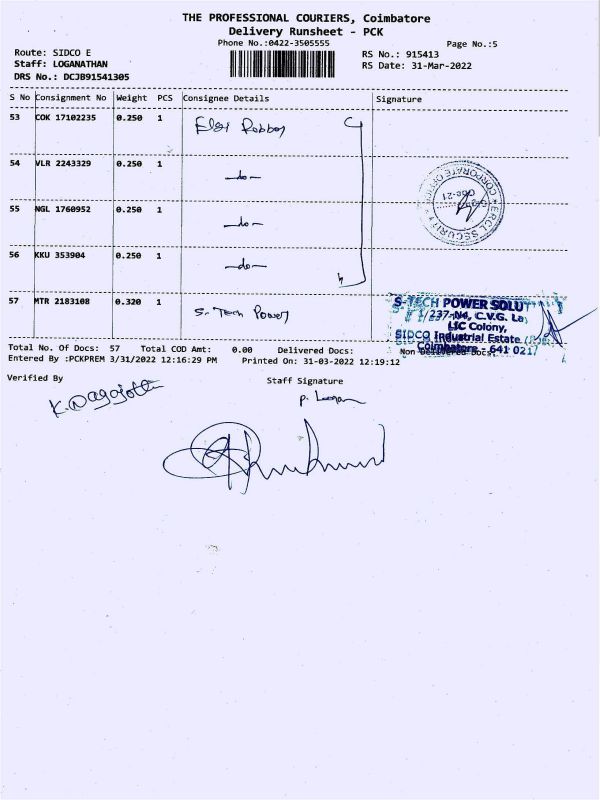 THE PROFESSIONAL COURIERS, Coimbatore
Delivery Runsheet - PCK
Phone No.:0422-3505555
Page No.:5
Route: SIDCO E
RS No.: 915413
Staff: LOGANATHAN
RS Date: 31-Mar-2022
DRS No.: DCJB91541305
S No Consignment No Weight PCS Consignee Details Signature
53 COK 17102235 0.250 1 Elgi Rubber
54 VLR 2243329 0.250 1 —do—
55 NGL 1760952 0.250 1 —do—
56 KKU 353904 0.250 1 —do—
57 MTR 2183108 0.320 1 S-Tech Power
CORPORATE OFFICE
ERCL SECURITY
S-TECH POWER SOLUT
# 1/237-N4, C.V.G. La
LIC Colony,
SIDCO Industrial Estate
Coimbatore - 641 021
Total No. Of Docs: 57 Total COD Amt: 0.00 Delivered Docs: Non Delivered Docs:
Entered By :PCKPREM 3/31/2022 12:16:29 PM Printed On: 31-03-2022 12:19:12
Verified By
Staff Signature